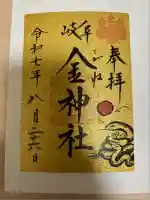 奉拝
岐阜
こがね
金神社
令和七年八月二十六日